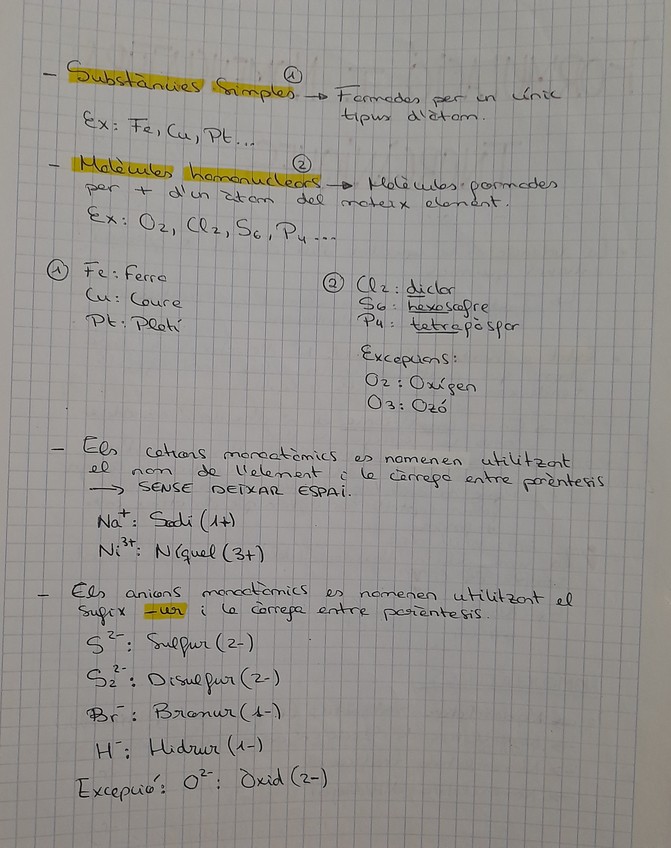 - Substàncies simples ① → Formades per un únic
tipus d'àtom.
Ex: Fe, Cu, Pt...
- Molècules homonuclears ② → Molècules formades
per + d'un àtom del mateix element.
Ex: O₂, Cl₂, S₆, P₄...
① Fe: Ferro
Cu: Coure
Pt: Platí
② Cl₂: diclor
S₆: hexasofre
P₄: tetrafòsfor
Excepcions:
O₂: Oxígen
O₃: Ozó
- Els cations monoatòmics es nomenen utilitzant
el nom de l'element i la càrrega entre parèntesis
→ SENSE DEIXAR ESPAI.
Na⁺: Sodi(1+)
Ni³⁺: Níquel(3+)
- Els anions monoatòmics es nomenen utilitzant el
sufix -ur i la càrrega entre parèntesis.
S²⁻: Sulfur(2-)
S₂²⁻: Disulfur(2-)
Br⁻: Bromur(1-)
H⁻: Hidrur(1-)
Excepció: O²⁻: Òxid(2-)